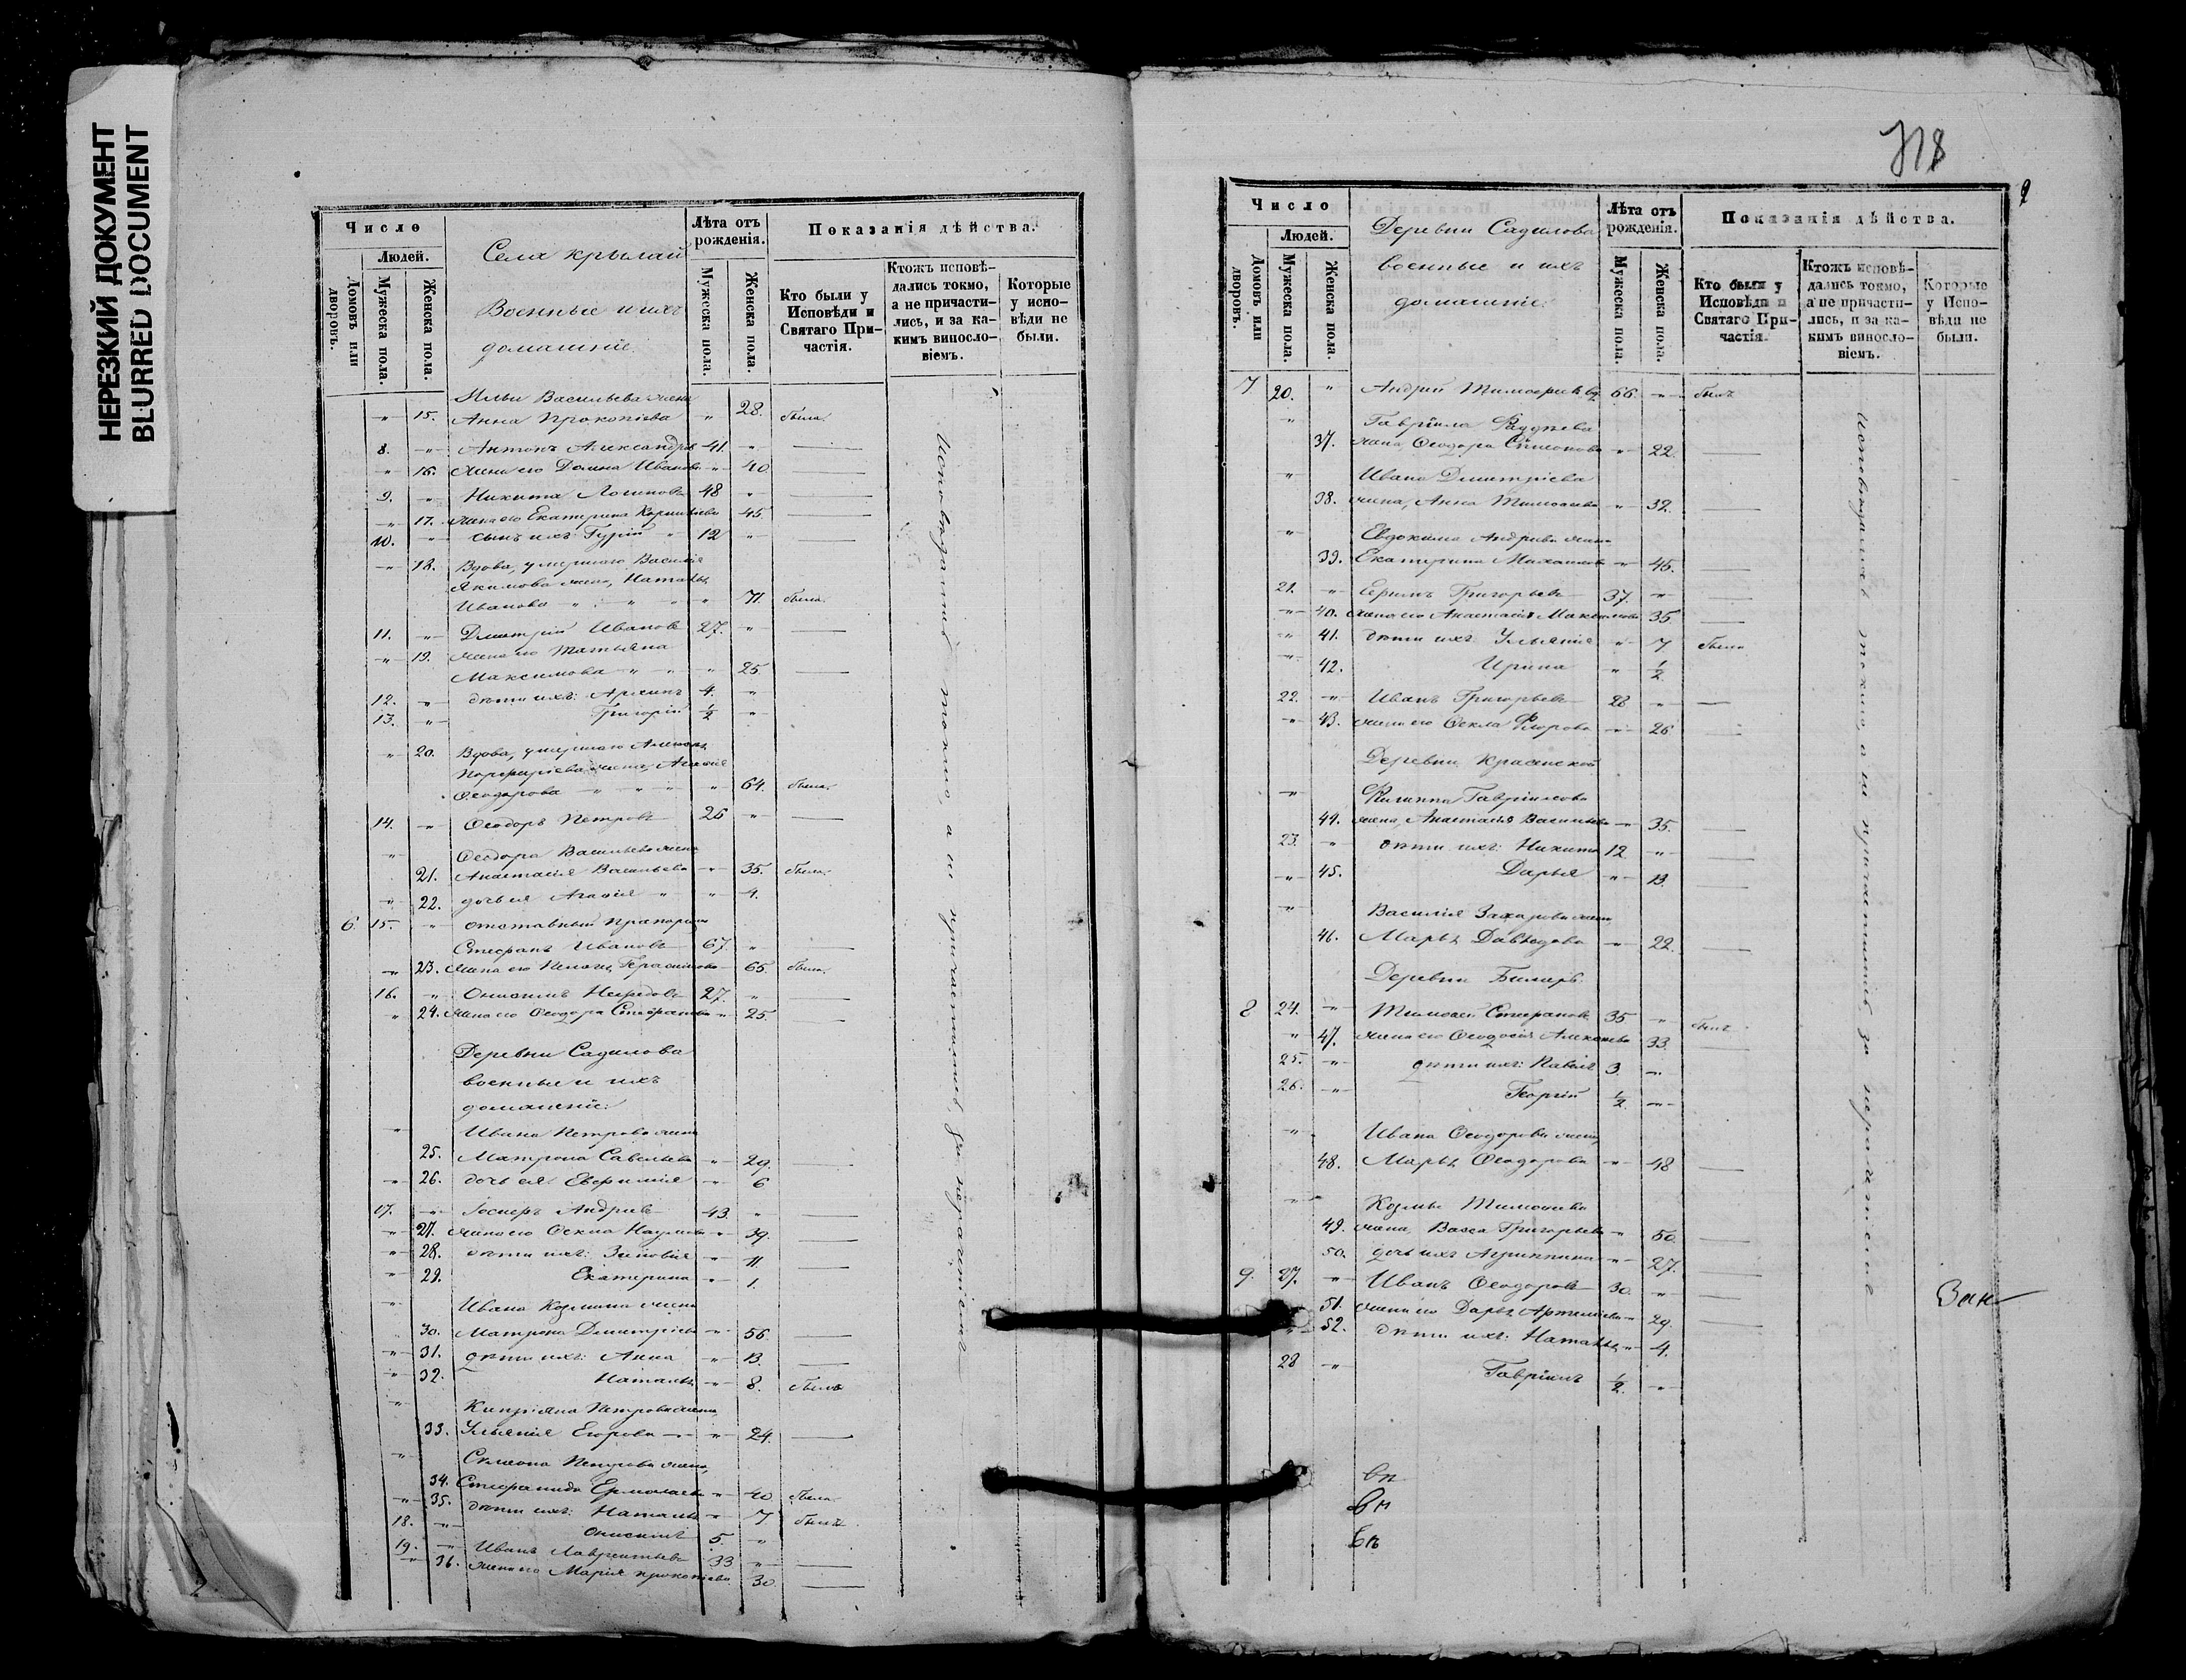 НЕРЕЗКИЙ ДОКУМЕНТ
BLURRED DOCUMENT
Число
Людей.
Домовъ или дворовъ.
Мужеска пола.
Женска пола.
Села Крылай
Военные и ихъ
домашніе
Лѣта отъ рожденія.
Мужеска пола.
Женска пола.
Показанія дѣйства.
Кто были у Исповѣди и Святаго Причастія.
Ктожъ исповѣдались токмо, а не причастились, и за какимъ винословіемъ.
Которые у исповѣди не были.
Ильи Васильева жена
" 15. Анна Прокопіева " 28. была
8. " Антонъ Александровъ 41. "
" 16. жена его Домна Иванова " 40
9. " Никита Логиновъ 48 "
" 17. жена его Екатерина Корнилiева 45.
10. " сынъ ихъ Гурій " 12 "
" 18. Вдова, умершаго Василія
Якимова жена, Наталья
Иванова " " " " 71. была
11. " Дмитрій Ивановъ 27. "
" 19. жена его Татьяна
Максимова " " " 25.
12. " дѣти ихъ: Архипъ 4. "
13. " Григорій ½ "
" 20. Вдова, умершаго Алексея
Порфиріева жена, Агафія
Ѳеодорова " " " " 64. была
14. " Ѳеодоръ Петровъ 26 "
" Ѳеодора Васильева жена
21. Анастасія Васильева " 35. была
" 22. дочь ея Агафія " " 4.
6 15. " отставный прапорщикъ
Стефанъ Ивановъ 67. "
" 23. жена его Пелагея Герасимова 65. была
16. " Онисимъ Нефедовъ 27. "
" 24. жена его Ѳеодора Стефанова " 25.
Деревни Садилова
военные и ихъ
домашніе:
" Ивана Петрова жена
25. Матрона Савельева " 29.
" 26. дочь ея Евфимія " 6
17. " Іосифъ Андреевъ 43. "
" 27. жена его Ѳекла Наумова " 39.
" 28. дѣти ихъ: Зиновія " 11
" 29. Екатерина " 1.
" Ивана Козмина жена
30. Матрона Дмитріева " 56.
" 31. дѣти ихъ: Анна " 13.
" 32. Наталья " 8. была
" Кипріана Петрова жена
33. Ульянія Егорова " " 24.
" Симеона Петрова жена,
34. Стефанида Ермолаева " 40 была
" 35. дѣти ихъ: Наталья " 7 были
18. " Онисимъ 5. "
19. " Иванъ Лаврентьевъ 33 "
" 36. жена его Марія Прокопіева 30
исповѣдались токмо, а не причастились за нераченіемъ
318
Число
Людей.
Домовъ или дворовъ.
Мужеска пола.
Женска пола.
Деревни Садилова
военные и ихъ
домашніе:
Лѣта отъ рожденія.
Мужеска пола.
Женска пола.
Показанія дѣйства.
Кто были у Исповѣди и Святаго Причастія.
Ктожъ исповѣдались токмо, а не причастились, и за какимъ винословіемъ.
Которые у Исповѣди не были.
7 20. " Андрей Тимофеевъ 66. " былъ
" Гавріила
37. жена, Ѳеодора Симонова " 22.
" Ивана Дмитріева
38. жена, Анна Тимофеева " 32.
" Евдокима Андреева жена
39. Екатерина Михайлова " 45.
21. " Ефимъ Григорьевъ 37. "
" 40. жена его Анастасія Максимова 35
" 41. дѣти ихъ Ульянія " 7 была
" 42. Ирина " ½
22. " Иванъ Григорьевъ 28 "
" 43. жена его Ѳекла Флорова " 26
Деревни, Красинской
" Филиппа Гавріилова
44. жена, Анастасія Васильева " 35.
23. " дѣти ихъ: Никита 12 "
" 45. Дарья " 13.
" Василія Захарова жена
46. Марья Давыдова " 22.
Деревни Билляръ.
8 24. " Тимофей Стефановъ 35 " былъ
" 47. жена его Ѳеодосія Алексеева 33.
25. " дѣти ихъ: Павелъ 3. "
26. " Георгій ½ "
" Ивана Ѳеодорова жена
48. Марья Ѳеодорова " 48
" Козмы Тимофеева
49. жена, Васса Григорьева " 50
50. дочь ихъ Агриппина " 27.
9. 27. " Иванъ Ѳеодоровъ 30. "
51. жена его Дарья Артемьева " 29.
" 52. дѣти ихъ: Наталья " 4.
28 " Гавріилъ ½ "
исповѣдались токмо, а не причастились за нераченіемъ